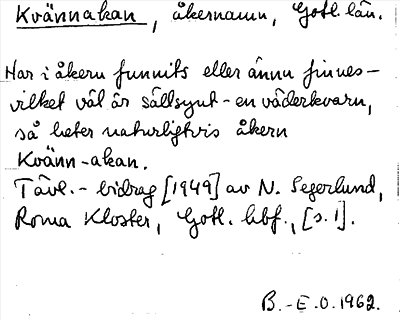 Kvännakan, åkernamn, Gotl. län.
Har i åkern funnits eller ännu finnes –
vilket väl är sällsynt – en väderkvarn,
så heter naturligtvis åkern
Kvänn-akan.
Tävl.- bidrag [1949] av N. Segerlund,
Roma Kloster, Gotl. hbf., [s. 1].
B.-E.O. 1962.